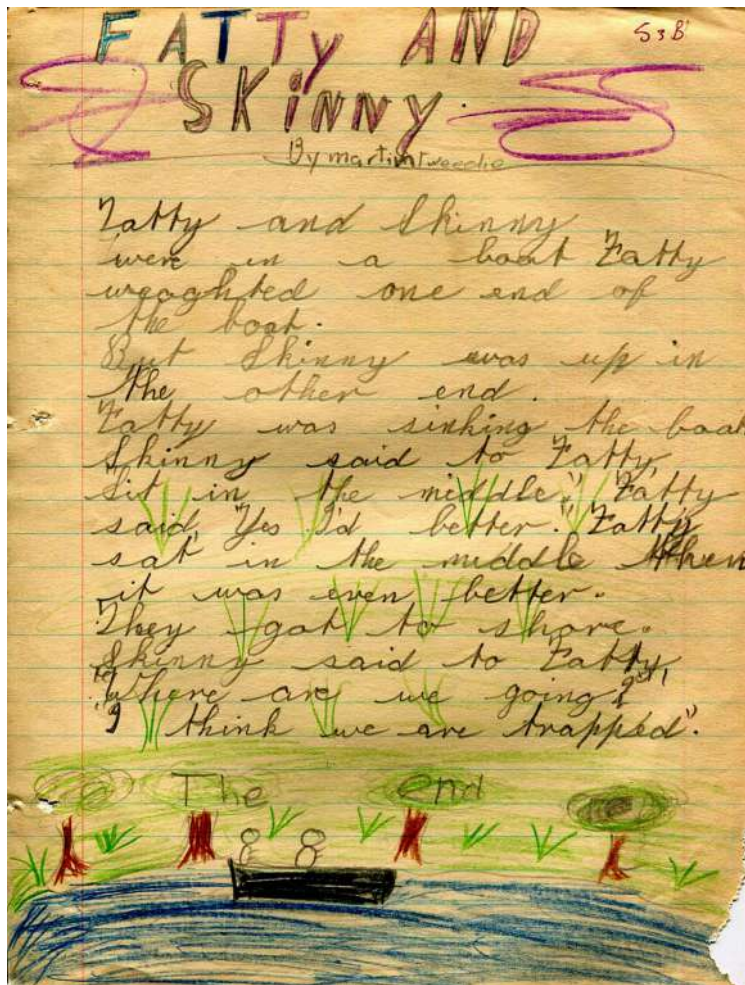 FATTy AND
S3B
SKiNNy.
By martin tweedie
Fatty and Skinny
were in a boat Fatty
weaghted one end of
the boat.
But Skinny was up in
the other end.
Fatty was sinking the boat
Skinny said to Fatty,
"Sit in the middle." Fatty
said, "Yes I'd better." Fatty
sat in the middle then
it was even better.
They got to shore.
Skinny said to Fatty,
"Where are we going?"
"I think we are trapped".
The end